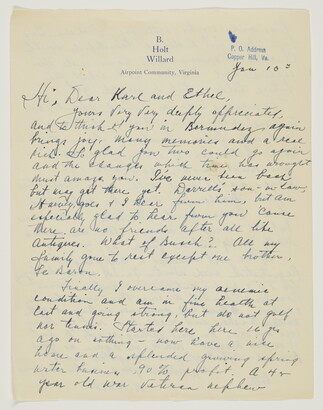 B.
Holt
Willard
Airpoint Community, Virginia
P. O. Address
Copper Hill, Va.
Jan 10
Hi, Dear Karl and Ethel,
Yours Very Very deeply appreciated,
and to think of you in Bermuda again
brings joy, many memories and a real
kick. So glad you two could go again
and the changes which time has wrought
must amaze you. I've never been back
but may get there yet. Darrell's son-in-law,
Stanley goes & I hear from him, but am
especially glad to hear from you 'cause
there are no friends after all like
Antiques. What of Busch? All my
family gone to rest except one brother,
Le Baron.
Finally I overcame my anemic
condition and am in fine health at
last and going strong, but do not golf
nor tennis. Started here 16 yrs
ago on nothing - now have a nice
home and a splendid growing spring
water business 90% profit. A 42
year old war veteran nephew